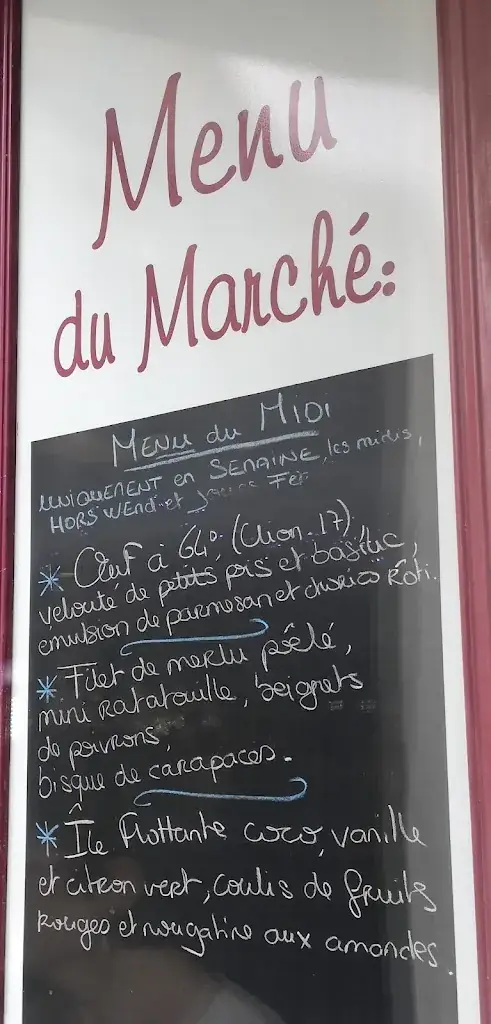 Menu
du Marché:
MENU du MIDI
UNIQUEMENT en SEMAINE, les midis,
HORS WEnd et jours Fér
* Œuf à 64°, (Clion 17),
velouté de petits pois et basilic,
émulsion de parmesan et chorizo Rôti.
* Filet de merlu poêlé,
mini Ratatouille, beignets
de poivrons,
bisque de carapaces.
* Île Flottante coco, vanille
et citron vert, coulis de fruits
Rouges et nougatine aux amandes.